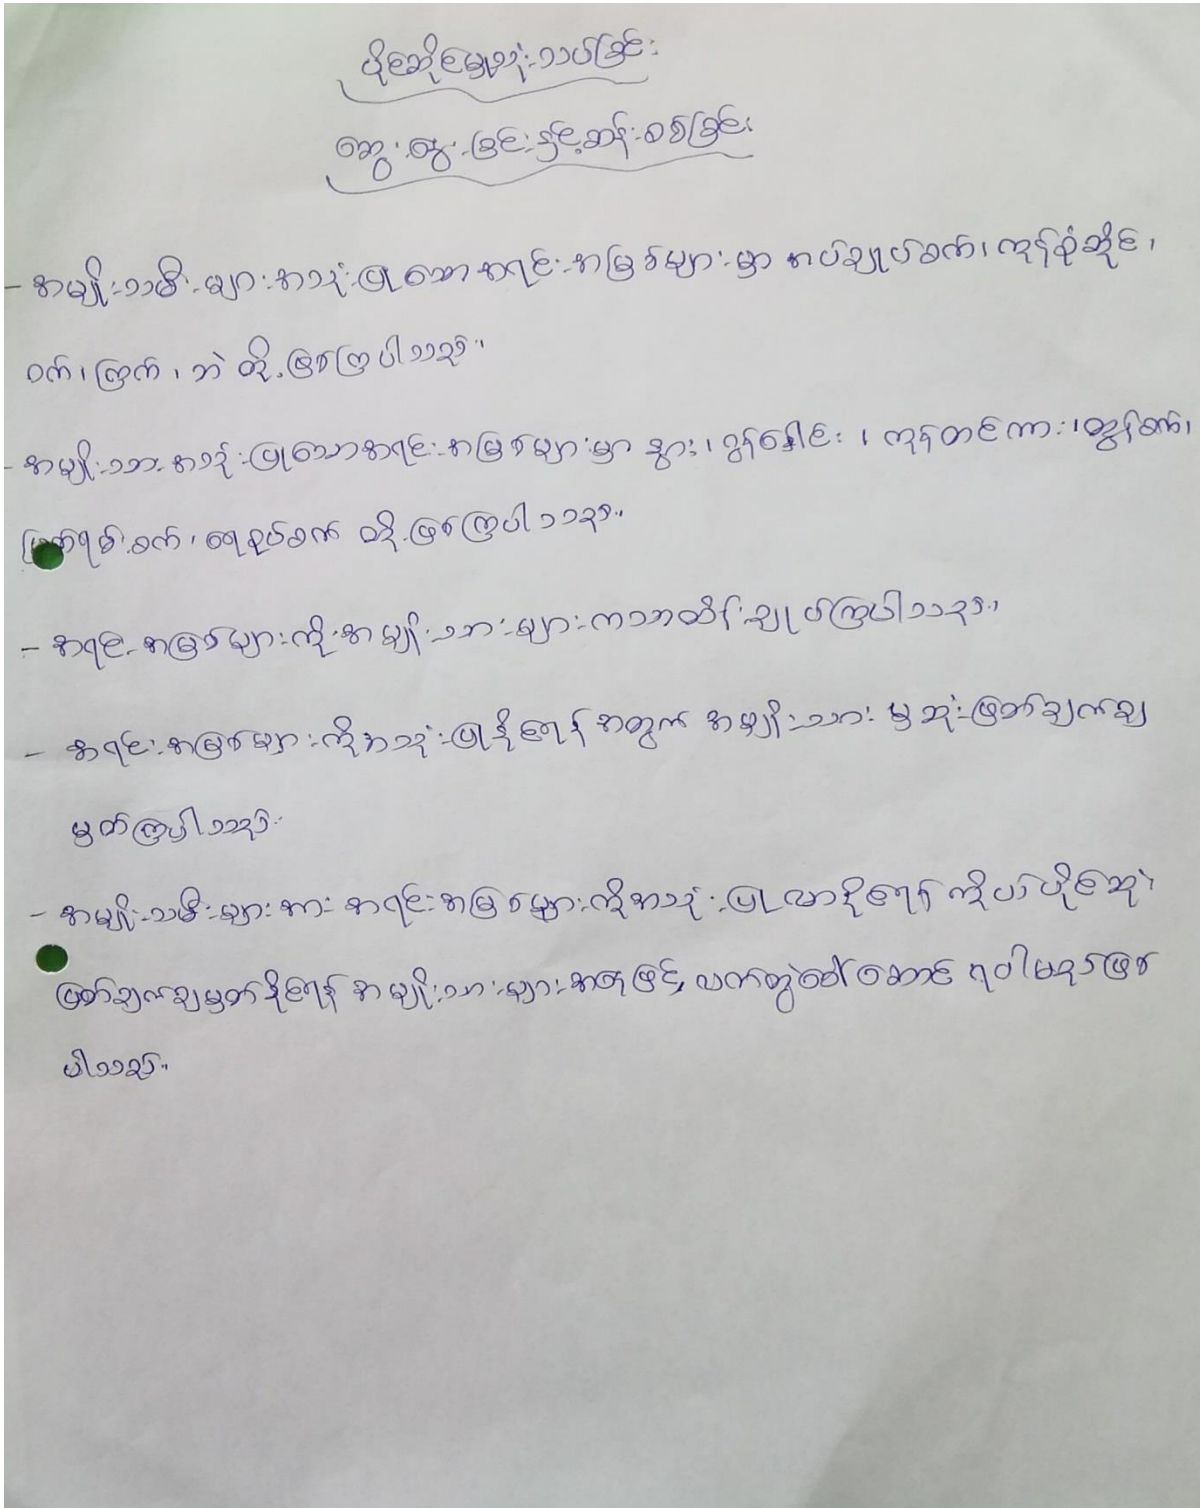 ပိုင်ဆိုင်မှုသုံးသပ်ခြင်း
ဆွေးနွေးခြင်းနှင့်ဆန်းစစ်ခြင်း
- အမျိုးသမီးများအသုံးပြုသောအရင်းအမြစ်များမှာ အပ်ချုပ်စက်၊ ကုန်စုံဆိုင်၊
ဝက်၊ ကြက်၊ ဘဲ တို့ဖြစ်ကြပါသည်။
- အမျိုးသားအသုံးပြုသောအရင်းအမြစ်များမှာ နွား၊ ဂွန်နှောင်း၊ ကုန်တင်ကား၊ ထွန်စက်၊
မြက်ရိတ်စက်၊ ရေစုပ်စက် တို့ဖြစ်ကြပါသည်။
- အရင်းအမြစ်များကိုအမျိုးသားများကသာထိန်းချုပ်ကြပါသည်။
- အရင်းအမြစ်များကိုအသုံးပြုနိုင်ရန်အတွက် အမျိုးသားမှဆုံးဖြတ်ချက်ချ
မှတ်ကြပါသည်။
- အမျိုးသမီးများအား အရင်းအမြစ်များကိုအသုံးပြုလာနိုင်ရန် ကိုယ်ပိုင်ဆုံး
ဖြတ်ချက်ချမှတ်နိုင်ရန် အမျိုးသားများအနေဖြင့် လက်တွဲခေါ်ဆောင်ရပါမည်ဖြစ်
ပါသည်။